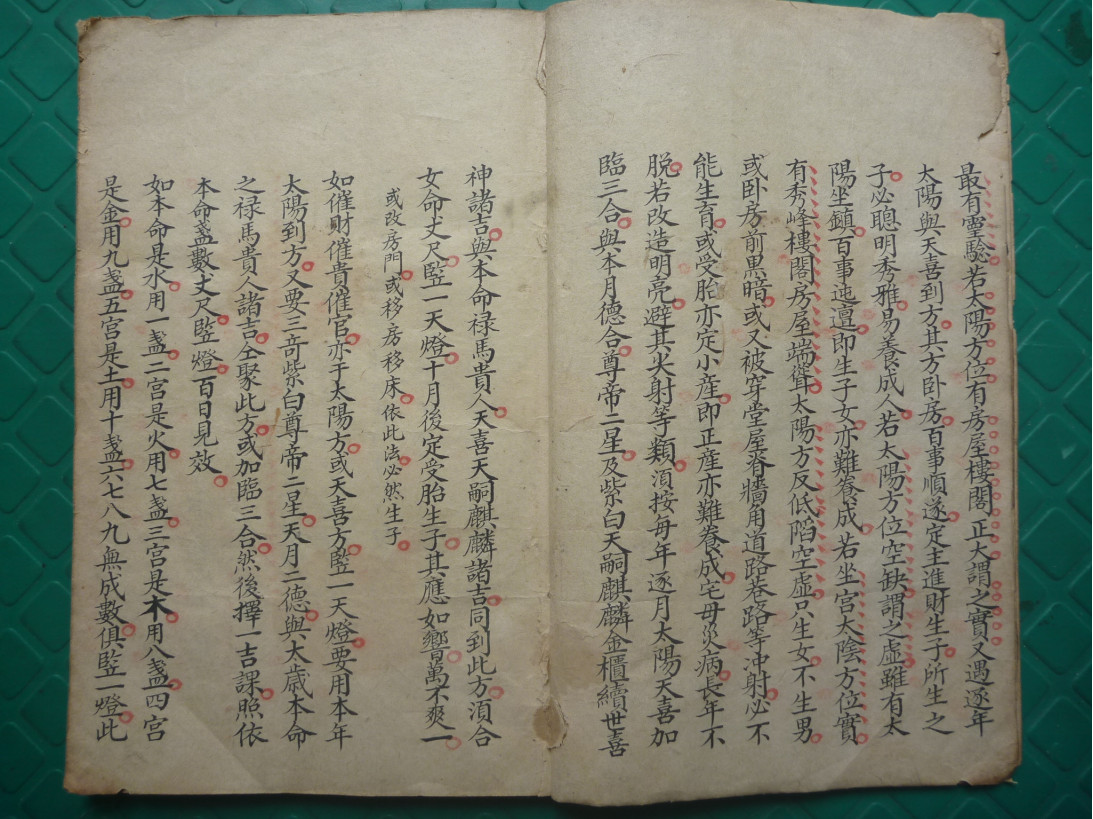 最有靈驗若太陽方位有房屋樓閣正大謂之實又遇逐年
太陽與天喜到方其方卧房百事順遂定主進財生子所生之
子必聰明秀雅易養成人若太陽方位空缺謂之虛雖有太
陽坐鎮百事迍邅即生子女亦難養成若坐宮太陰方位實
有秀峰樓閣房屋端聳太陽方反低陷空虛只生女不生男
或卧房前黑暗或又被穿堂屋脊牆角道路巷路等冲射必不
能生育或受胎亦定小產即正產亦難養成宅母災病長年不
脱若改造明亮避其尖射等類須按每年逐月太陽天喜加
臨三合與本月德合尊帝二星及紫白天嗣麒麟金櫃續世喜
神諸吉與本命禄馬貴人天喜天嗣麒麟諸吉同到此方須合
女命丈尺竪一天燈十月後定受胎生子其應如響萬不爽一
或改房門或移房移床依此法必然生子
如催財催貴催官亦于太陽方或天喜方竪一天燈要用本年
太陽到方又要三奇紫白尊帝二星天月二德與大歲本命
之禄馬貴人諸吉仝聚此方或加臨三合然後擇一吉課照依
本命盞數丈尺竪燈百日見效
如本命是水用一盞二宮是火用七盞三宮是木用八盞四宮
是金用九盞五宮是土用十盞六七八九無成數俱竪一燈此